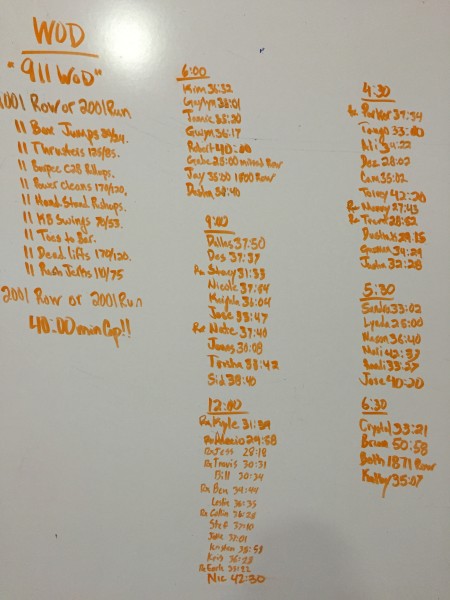 WOD
"911 WOD"
1001 Row or 2001 Run
11 Box Jumps
11 Thrusters 125/85.
11 Burpee C2B Pullups.
11 Power cleans 170/120.
11 Hand Stand Pushups.
11 KB Swings 70/53.
11 Toes to Bar.
11 Dead lifts 170/120.
11 Push Jerks 110/75
2001 Row or 2001 Run
40:00 min Cap!!
6:00
Kim 36:32
38:01
35:20
Gwyn 36:17
Robert 40:00
Gabe 25:00 missed Row
Jay 35:00 1800 Row
38:40
9:00
Dallas 37:50
Des 37:37
Rx Stacy 31:33
Nicole 37:54
36:04
Jose 33:47
Rx Nate 37:40
James 30:08
Trisha 33:42
Sid 38:40
12:00
Rx Kyle 31:39
Rx 29:58
Rx Jess 28:18
Rx Travis 30:31
Bill 30:34
Rx Ben 34:44
Leslie 36:35
Rx Collin 36:28
Stef 37:10
Julie 37:01
Kristen 35:53
Kris 36:28
Rx 35:22
Nic 42:30
4:30
Rx Parker 37:34
33:00
Ali 34:22
Dez 28:02
Cam 35:02
42:20
Rx 27:43
Rx 28:52
29:15
34:29
Justin 32:28
5:30
Sandra 33:02
Lynda 25:00
Mason 36:40
42:37
33:57
Jose 40:20
6:30
Crystal 33:21
Brian 50:58
Both 1871 Row
Kathy 35:07